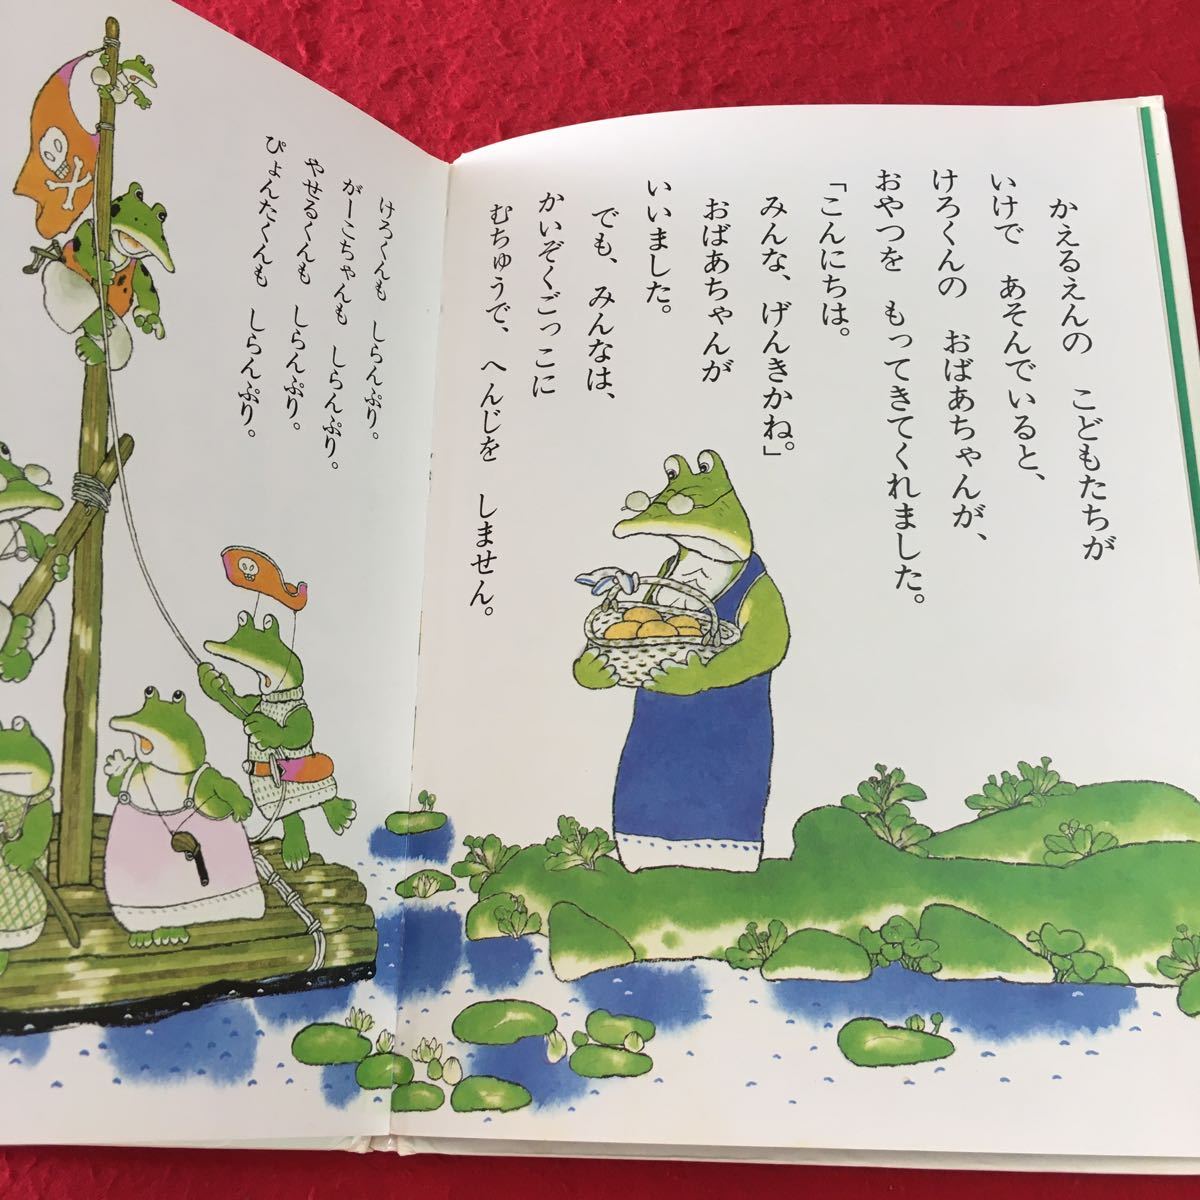 かえるえんの　こどもたちが
いけで　あそんでいると、
けろくんの　おばあちゃんが、
おやつを　もってきてくれました。
「こんにちは。
みんな、げんきかね。」
おばあちゃんが
いいました。
でも、みんなは、
かいぞくごっこに
むちゅうで、へんじを　しません。
けろくんも　しらんぷり。
がーこちゃんも　しらんぷり。
やせるくんも　しらんぷり。
ぴょんたくんも　しらんぷり。